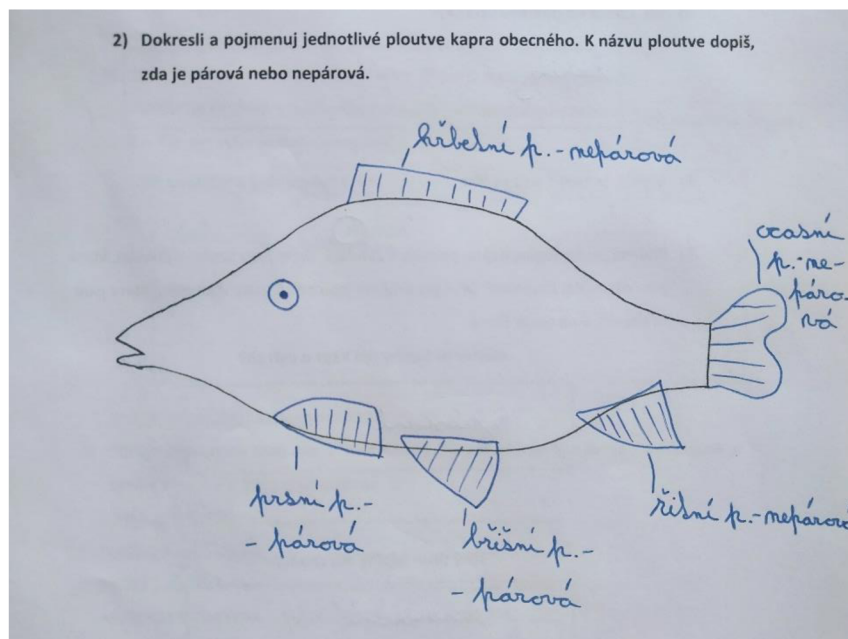 2) Dokresli a pojmenuj jednotlivé ploutve kapra obecného. K názvu ploutve dopiš,
zda je párová nebo nepárová.
hřbetní p. - nepárová
ocasní
p. - ne-
páro-
vá
prsní p. -
- párová
břišní p. -
- párová
řitní p. - nepárová